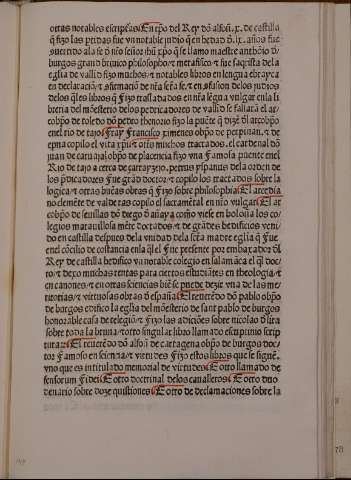 otras notables escripturas. En tpo del Rey dō alfon. x. de castilla
q̄ fizo las ptidas fue vn notable iudio que en hedad d̄. lx. años fue
cuertido ala fe d̄ nr̄o señor ihū xp̄o q̄ se llamo maestre anthōio d̄
burgos grand bivico philosopho ⁊ metafisico ⁊ fue sacrista dela
eglia de vallid̄ fizo muchos ⁊ notables libros en lengua ebrayca
en declaraciō ⁊ firmeza d̄ nr̄a scā fe ⁊ en cōfusion delos judios
delos q̄les libros q̄ fizo trasladados en nr̄a lēgua vulgar en la li
breria del mōesterio de los pedricadores de vallid̄ se fallara el ar
cobp̄o de toledo dō pedro thenorio fizo la puēte q̄ dizē dl̄ arcobp̄o
en el rio de tajo. Fray Francisco ximenes obp̄o de perpinan. ⁊ de
epna copilo el vita xp̄i ⁊ otrs muchos tractados. el cardenal dō
juan de caruajal obp̄o de plasencia fizo vna famosa puente en el
Rio de tajo a cerca de garrouejo. petrus yspanus dela orden de
los p̄dicadores Fue grād doctor ⁊ copilo los tractados sobre la
logica ⁊ otras buēas obras q̄ fizo sobre philosophia. El arcedia
no clemēte de valderas copilo el sacramētal en nr̄o vulgar. El ar
cobp̄o de seuillas dō diego d̄ añaya como viese en boloña los co
legios marauillosa mēte doctados ⁊ de grandes hedificios veni
do en castilla despues dela vnidad dela scrā madre eglia q̄ Fue
enel cōcilio de costancia enla q̄l el Fue presente por embaxador dl̄
Rey de castilla hedifico vn notable colegio en salamāca el q̄l do
to ⁊ dexo muchas rentas para ciertos estudiātes en theologia ⁊
en canones. ⁊ en otras sciencias biē se puede dezir vna de las me
ritorias ⁊ virtuosas obras d̄ españa. El reuerēdo dō pablo obp̄o
de burgos edifico la eglia del mōesterio de sant pablo de burgos
honorable casa de religiō ⁊ fizo las adiciōes sobre nicolao d̄ lira
sobre toda la bruna ⁊ otro singular libro llamado escrupinio scrip
turarū. El reuerēdo dō alfon de cartagena obp̄o de burgos doc
tor famoso en sciencia ⁊ virtudes Fizo estos libros que se siguē.
vno que es intitulado memorial de virtudes. E otro llamado de
fensorum Fidei. E otro doctrinal delos caualleros. E otro duo
denario sobre doze questiones. E otro de declamaciones sobre la